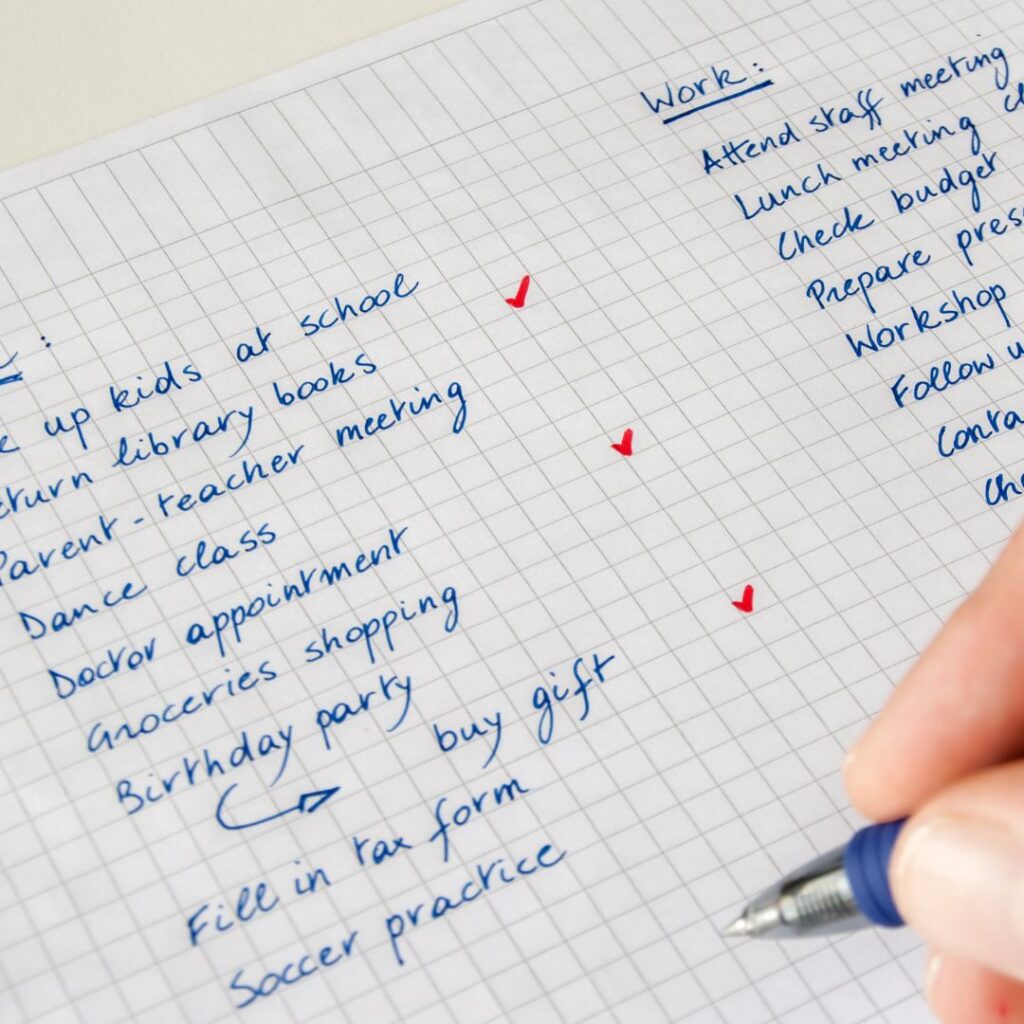 :
up kids at school
library books
Parent-teacher meeting
Dance class
Doctor appointment
Groceries shopping
Birthday party
buy gift
Fill in tax form
Soccer practice
Work:
Attend staff meeting
Lunch meeting
Check budget
Prepare
Workshop
Follow